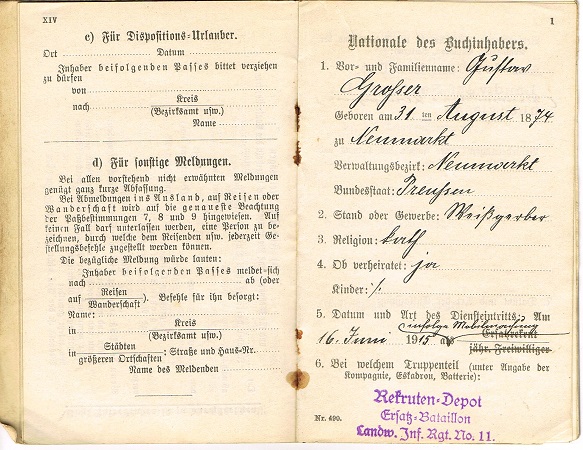 XIV
c) Für Dispositions-Urlauber.
Ort Datum
Inhaber beifolgenden Passes bittet verziehen
zu dürfen
von
nach Kreis
(Bezirksamt usw.)
Name
d) Für sonstige Meldungen.
Bei allen vorstehend nicht erwähnten Meldungen
genügt ganz kurze Abfassung.
Bei Abmeldungen ins Ausland, auf Reisen oder
Wanderschaft wird auf die genaueste Beachtung
der Paßbestimmungen 7, 8 und 9 hingewiesen. Auf
keinen Fall darf unterlassen werden, eine Person zu be-
zeichnen, durch welche dem Reisenden usw. jederzeit Ge-
stellungsbefehle zugestellt werden können.
Die bezügliche Meldung würde lauten:
Inhaber beifolgenden Passes meldet sich
nach ab (oder
auf Reisen
Wanderschaft). Befehle für ihn besorgt:
Name:
in Kreis
(Bezirksamt usw.)
in Städten
größeren Ortschaften: Straße und Haus-Nr.
Name des Meldenden
1
Nationale des Buchinhabers.
1. Vor- und Familienname: Gustav
Grosser
Geboren am 31 ten August 1874
zu Neumarkt
Verwaltungsbezirk: Neumarkt
Bundesstaat: Preussen
2. Stand oder Gewerbe: Weißgerber
3. Religion: kath
4. Ob verheiratet: ja
Kinder: /.
5. Datum und Art des Diensteintritts: Am
infolge Mobilmachung
16. Juni 1915 als Ersatzrekrut
jähr. Freiwilliger
6. Bei welchem Truppenteil (unter Angabe der
Kompagnie, Eskadron, Batterie):
Rekruten-Depot
Ersatz-Bataillon
Landw. Inf. Rgt. No. 11.
Nr. 490.